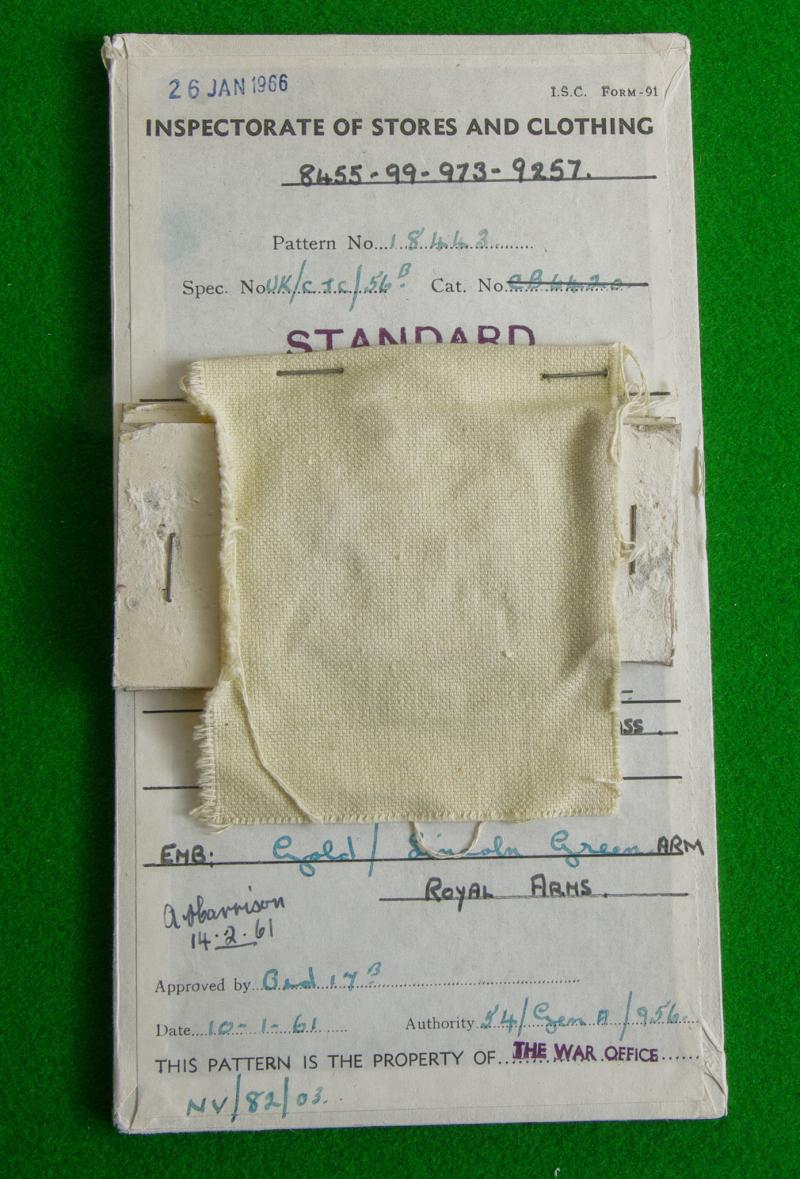 26 JAN 1966
I.S.C. FORM-91
INSPECTORATE OF STORES AND CLOTHING
8455-99-973-9257.
Pattern No...18443.......
Spec. No UK/CTC/56B. Cat. No. CB6420
STANDARD
EMB: Gold/Lincoln Green ARM
ROYAL ARMS.
A Harrison
14.2.61
Approved by Bed 17B
Date...10-1-61.... Authority 54/Gen A/956.
THIS PATTERN IS THE PROPERTY OF...THE WAR OFFICE......
NV/82/03.